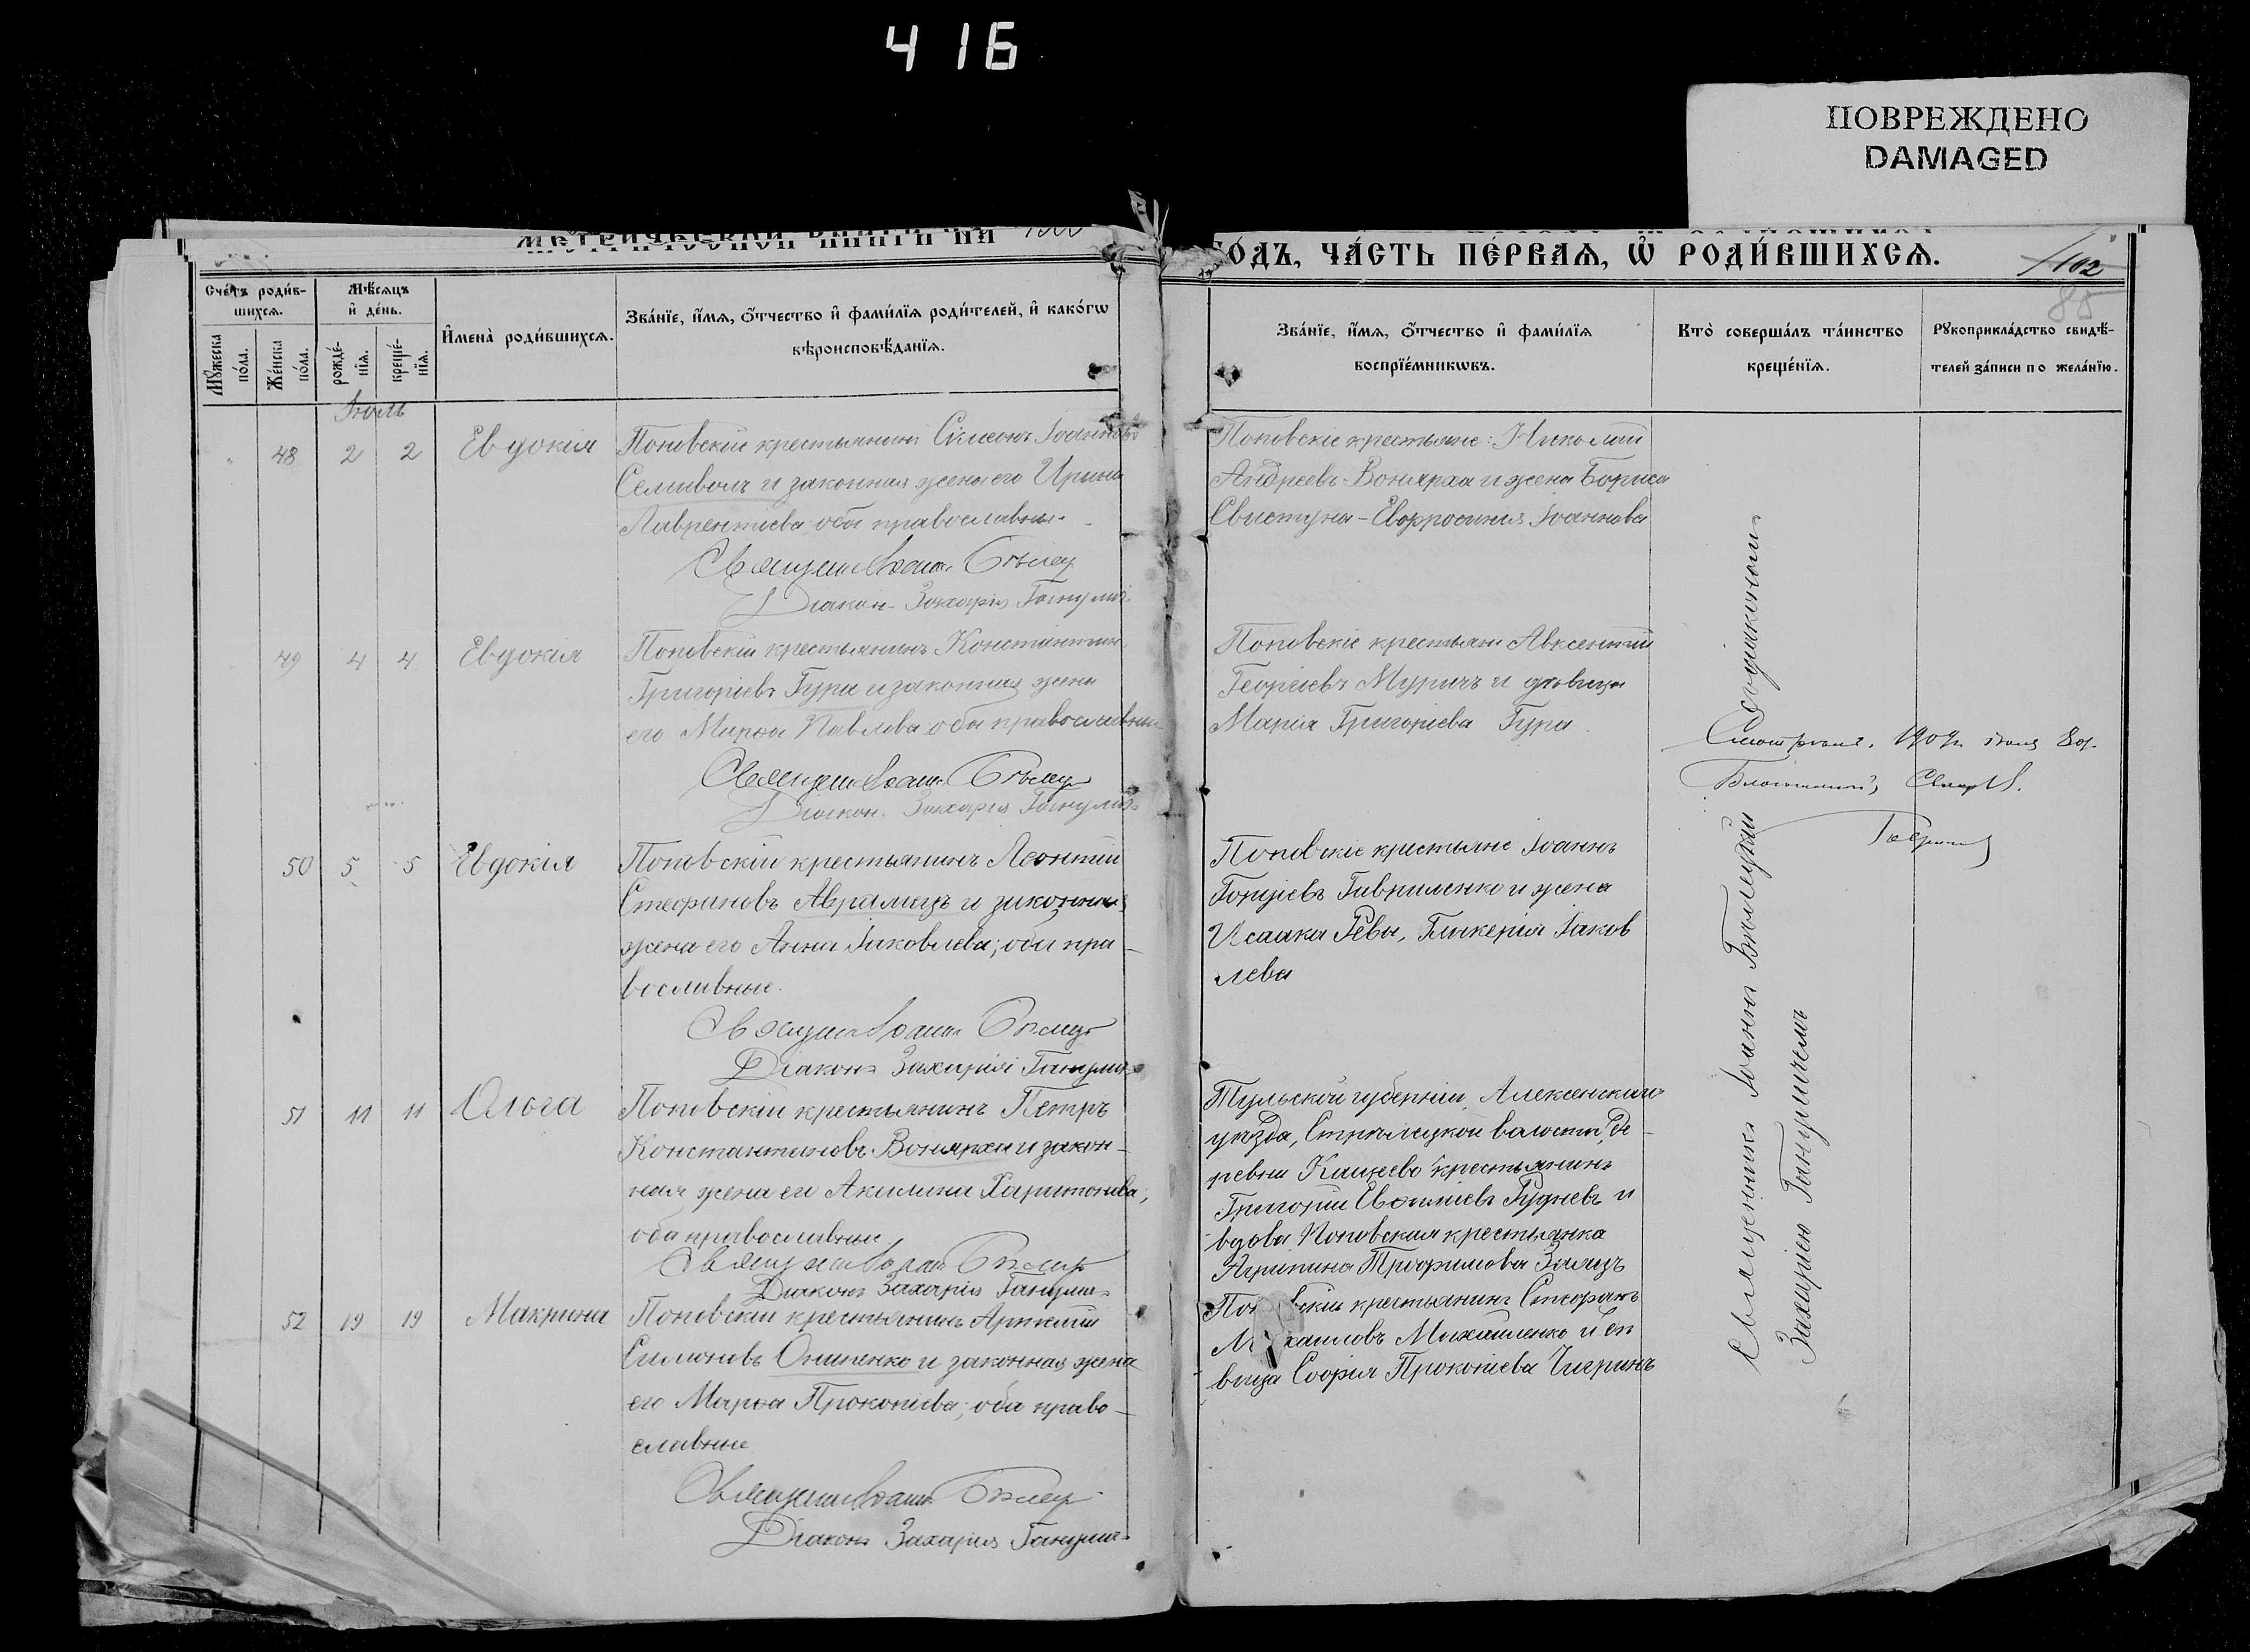 416
ПОВРЕЖДЕНО
DAMAGED
МЕТРИЧЕСКОЙ КНИГИ НА
ГО́ДЪ, ЧА́СТЬ ПЕ́РВАЯ, Ѡ҆ РОДИ́ВШИХСЯ.
102
85
Сче́тъ роди́в-
шихся.
Мѣ́сяцъ
и҆ де́нь.
Мꙋ́жеска
по́ла.
Же́нска
по́ла.
рожде́-
нїя.
креще́-
нїя.
И҆мена̀ роди́вшихся.
Зва́нїе, и҆́мя, ѻ҆́тчество и҆ фами́лїя роди́телей, и҆ како́гѡ
вѣроисповѣ́данїя.
Зва́нїе, и҆́мя, ѻ҆́тчество и҆ фами́лїя
воспрїе́мникѡвъ.
Кто̀ соверша́лъ та́инство
креще́нїя.
Рꙋкоприкла́дство свидѣ́-
телей за́писи по жела́нїю.
Іюль
48 2 2 Евдокія
Поповскій крестьянинъ Сѵмеонъ Іоанновъ
Семиволъ и законная жена его Ирина
Лаврентіева оба православные
Священникъ Іоаннъ Бѣлец
Діаконъ Захарія Ганулич
Поповскіе крестьяне: Николай
Андреевъ Вонярха и жена Бориса
Свистуна - Евфросинія Іоаннова
49 4 4 Евдокія
Поповскій крестьянинъ Константинъ
Григоріевъ Гура и законная жена
его Марѳа Павлова оба православные
Священникъ Іоаннъ Бѣлец
Діаконъ Захарія Ганулич
Поповскіе крестьяне Авксентій
Георгіевъ Муричъ и дѣвица
Марія Григоріева Гура
50 5 5 Евдокія
Поповскій крестьянинъ Леонтій
Стефановъ Аврамецъ и законная
жена его Анна Іаковлева; оба пра-
вославные.
Священникъ Іоаннъ Бѣлец
Діаконъ Захарія Ганулич
Поповскіе крестьяне Іоаннъ
Гавриленко и жена
Исаака Ревы, Гликерія Іаков
лева
51 11 11 Ольга
Поповскій крестьянинъ Петръ
Константиновъ Вонярха и закон-
ная жена его Акилина Харитонова;
оба православные
Священникъ Іоаннъ Бѣлец
Діаконъ Захарія Ганулич
Тульской губерніи, Алексенскаго
уѣзда, Стрѣлецкой волости, де-
ревни Кащеево крестьянинъ
Григорій Евѳиміевъ Рудневъ и
вдова Поповская крестьянка
Агрипина Трофимова Заяцъ
52 19 19 Макрина
Поповскій крестьянинъ
Симоновъ Онипенко и законная жена
его Марѳа Прокопіева; оба право-
славные
Священникъ Іоаннъ Бѣлец
Діаконъ Захарія Ганулич
крестьянинъ Стефанъ
Михаиловъ Михайленко и дѣ
вица Софія Прокопіева Чигринъ
Священникъ Іоаннъ Бѣлецкій съ діакономъ
Захаріею Гануличемъ